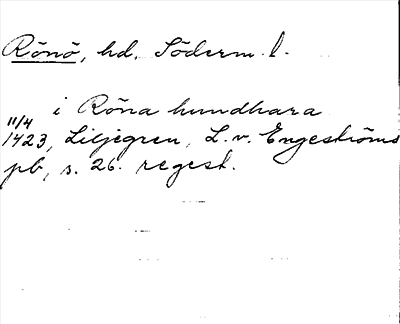 Rönö, hd. Söderm. l.
i Röna hundhara
11/4
1423, Liljegren, L. v. Engeströms
pb, s. 26. regest.